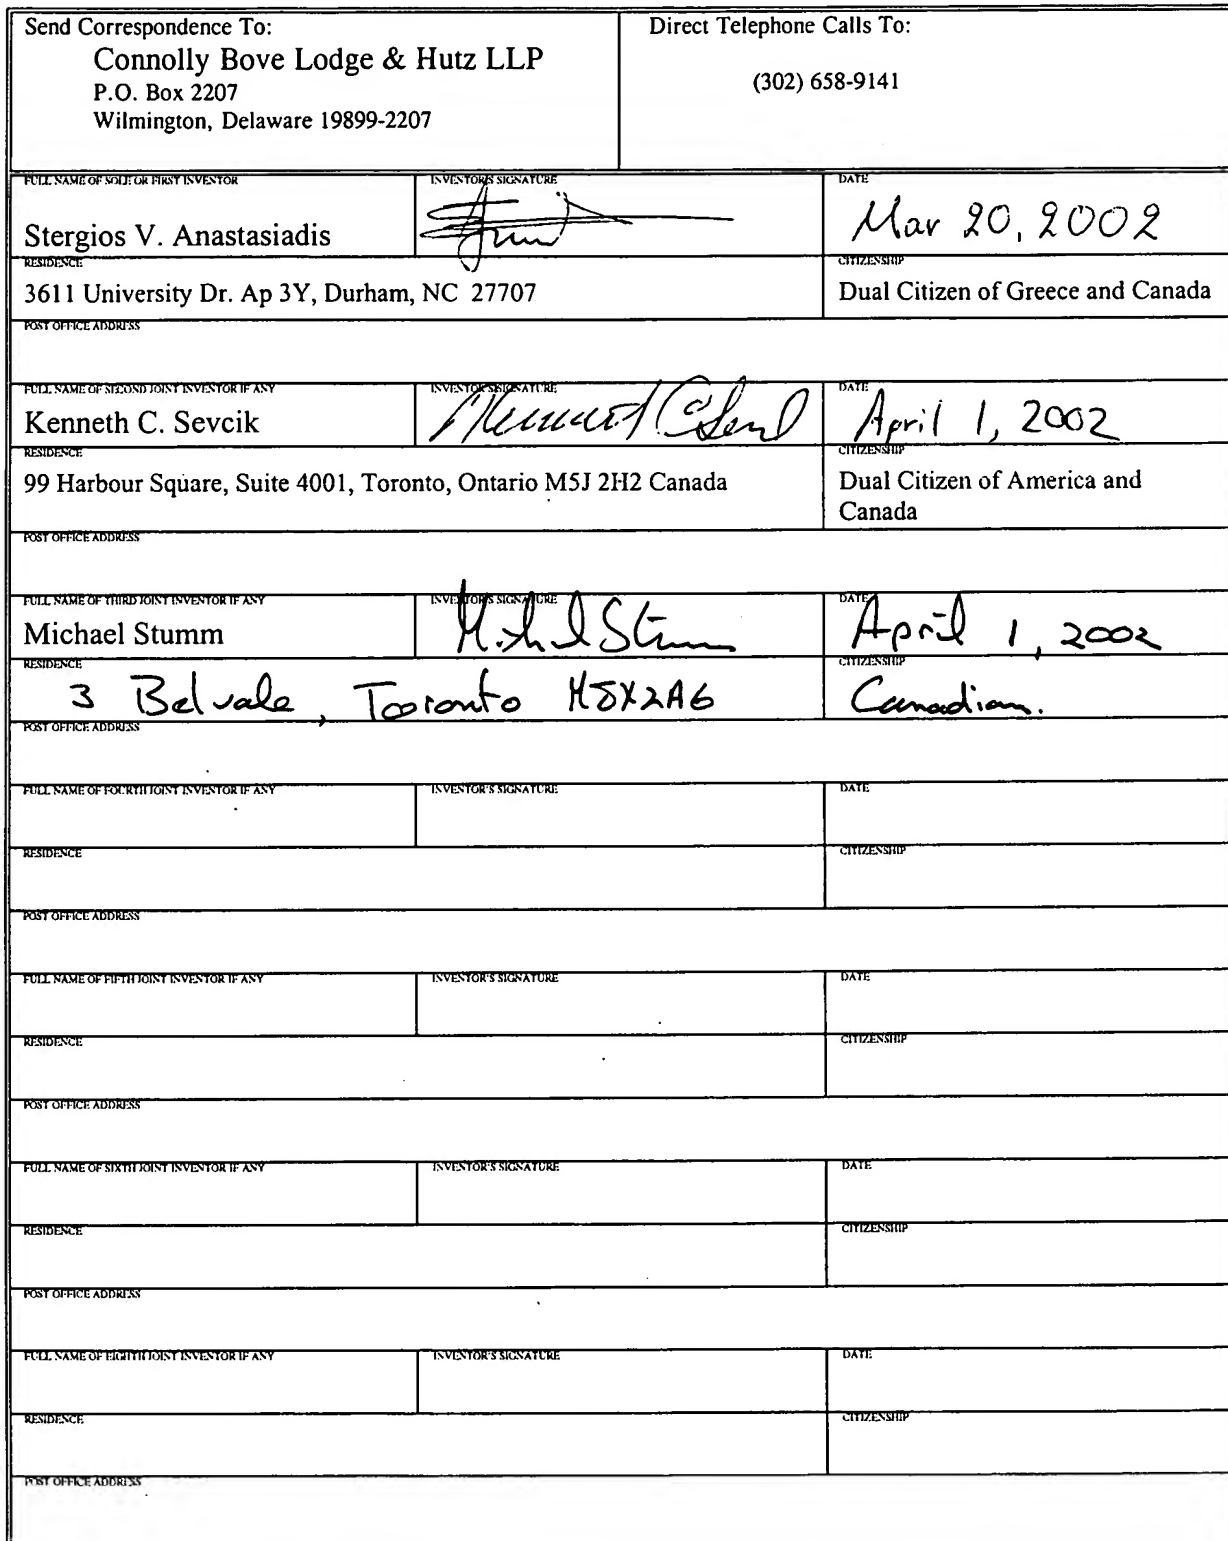 Send Correspondence To:
Connolly Bove Lodge & Hutz LLP
P.O. Box 2207
Wilmington, Delaware 19899-2207
Direct Telephone Calls To:
(302) 658-9141
FULL NAME OF SOLE OR FIRST INVENTOR
INVENTOR'S SIGNATURE
DATE
Stergios V. Anastasiadis
Mar 20, 2002
RESIDENCE
CITIZENSHIP
3611 University Dr. Ap 3Y, Durham, NC 27707
Dual Citizen of Greece and Canada
POST OFFICE ADDRESS
FULL NAME OF SECOND JOINT INVENTOR IF ANY
INVENTOR'S SIGNATURE
DATE
Kenneth C. Sevcik
April 1, 2002
RESIDENCE
CITIZENSHIP
99 Harbour Square, Suite 4001, Toronto, Ontario M5J 2H2 Canada
Dual Citizen of America and
Canada
POST OFFICE ADDRESS
FULL NAME OF THIRD JOINT INVENTOR IF ANY
INVENTOR'S SIGNATURE
DATE
Michael Stumm
Michael Stumm
April 1, 2002
RESIDENCE
CITIZENSHIP
3 Belvale, Toronto M8X2A6
Canadian.
POST OFFICE ADDRESS
FULL NAME OF FOURTH JOINT INVENTOR IF ANY
INVENTOR'S SIGNATURE
DATE
RESIDENCE
CITIZENSHIP
POST OFFICE ADDRESS
FULL NAME OF FIFTH JOINT INVENTOR IF ANY
INVENTOR'S SIGNATURE
DATE
RESIDENCE
CITIZENSHIP
POST OFFICE ADDRESS
FULL NAME OF SIXTH JOINT INVENTOR IF ANY
INVENTOR'S SIGNATURE
DATE
RESIDENCE
CITIZENSHIP
POST OFFICE ADDRESS
FULL NAME OF EIGHTH JOINT INVENTOR IF ANY
INVENTOR'S SIGNATURE
DATE
RESIDENCE
CITIZENSHIP
POST OFFICE ADDRESS